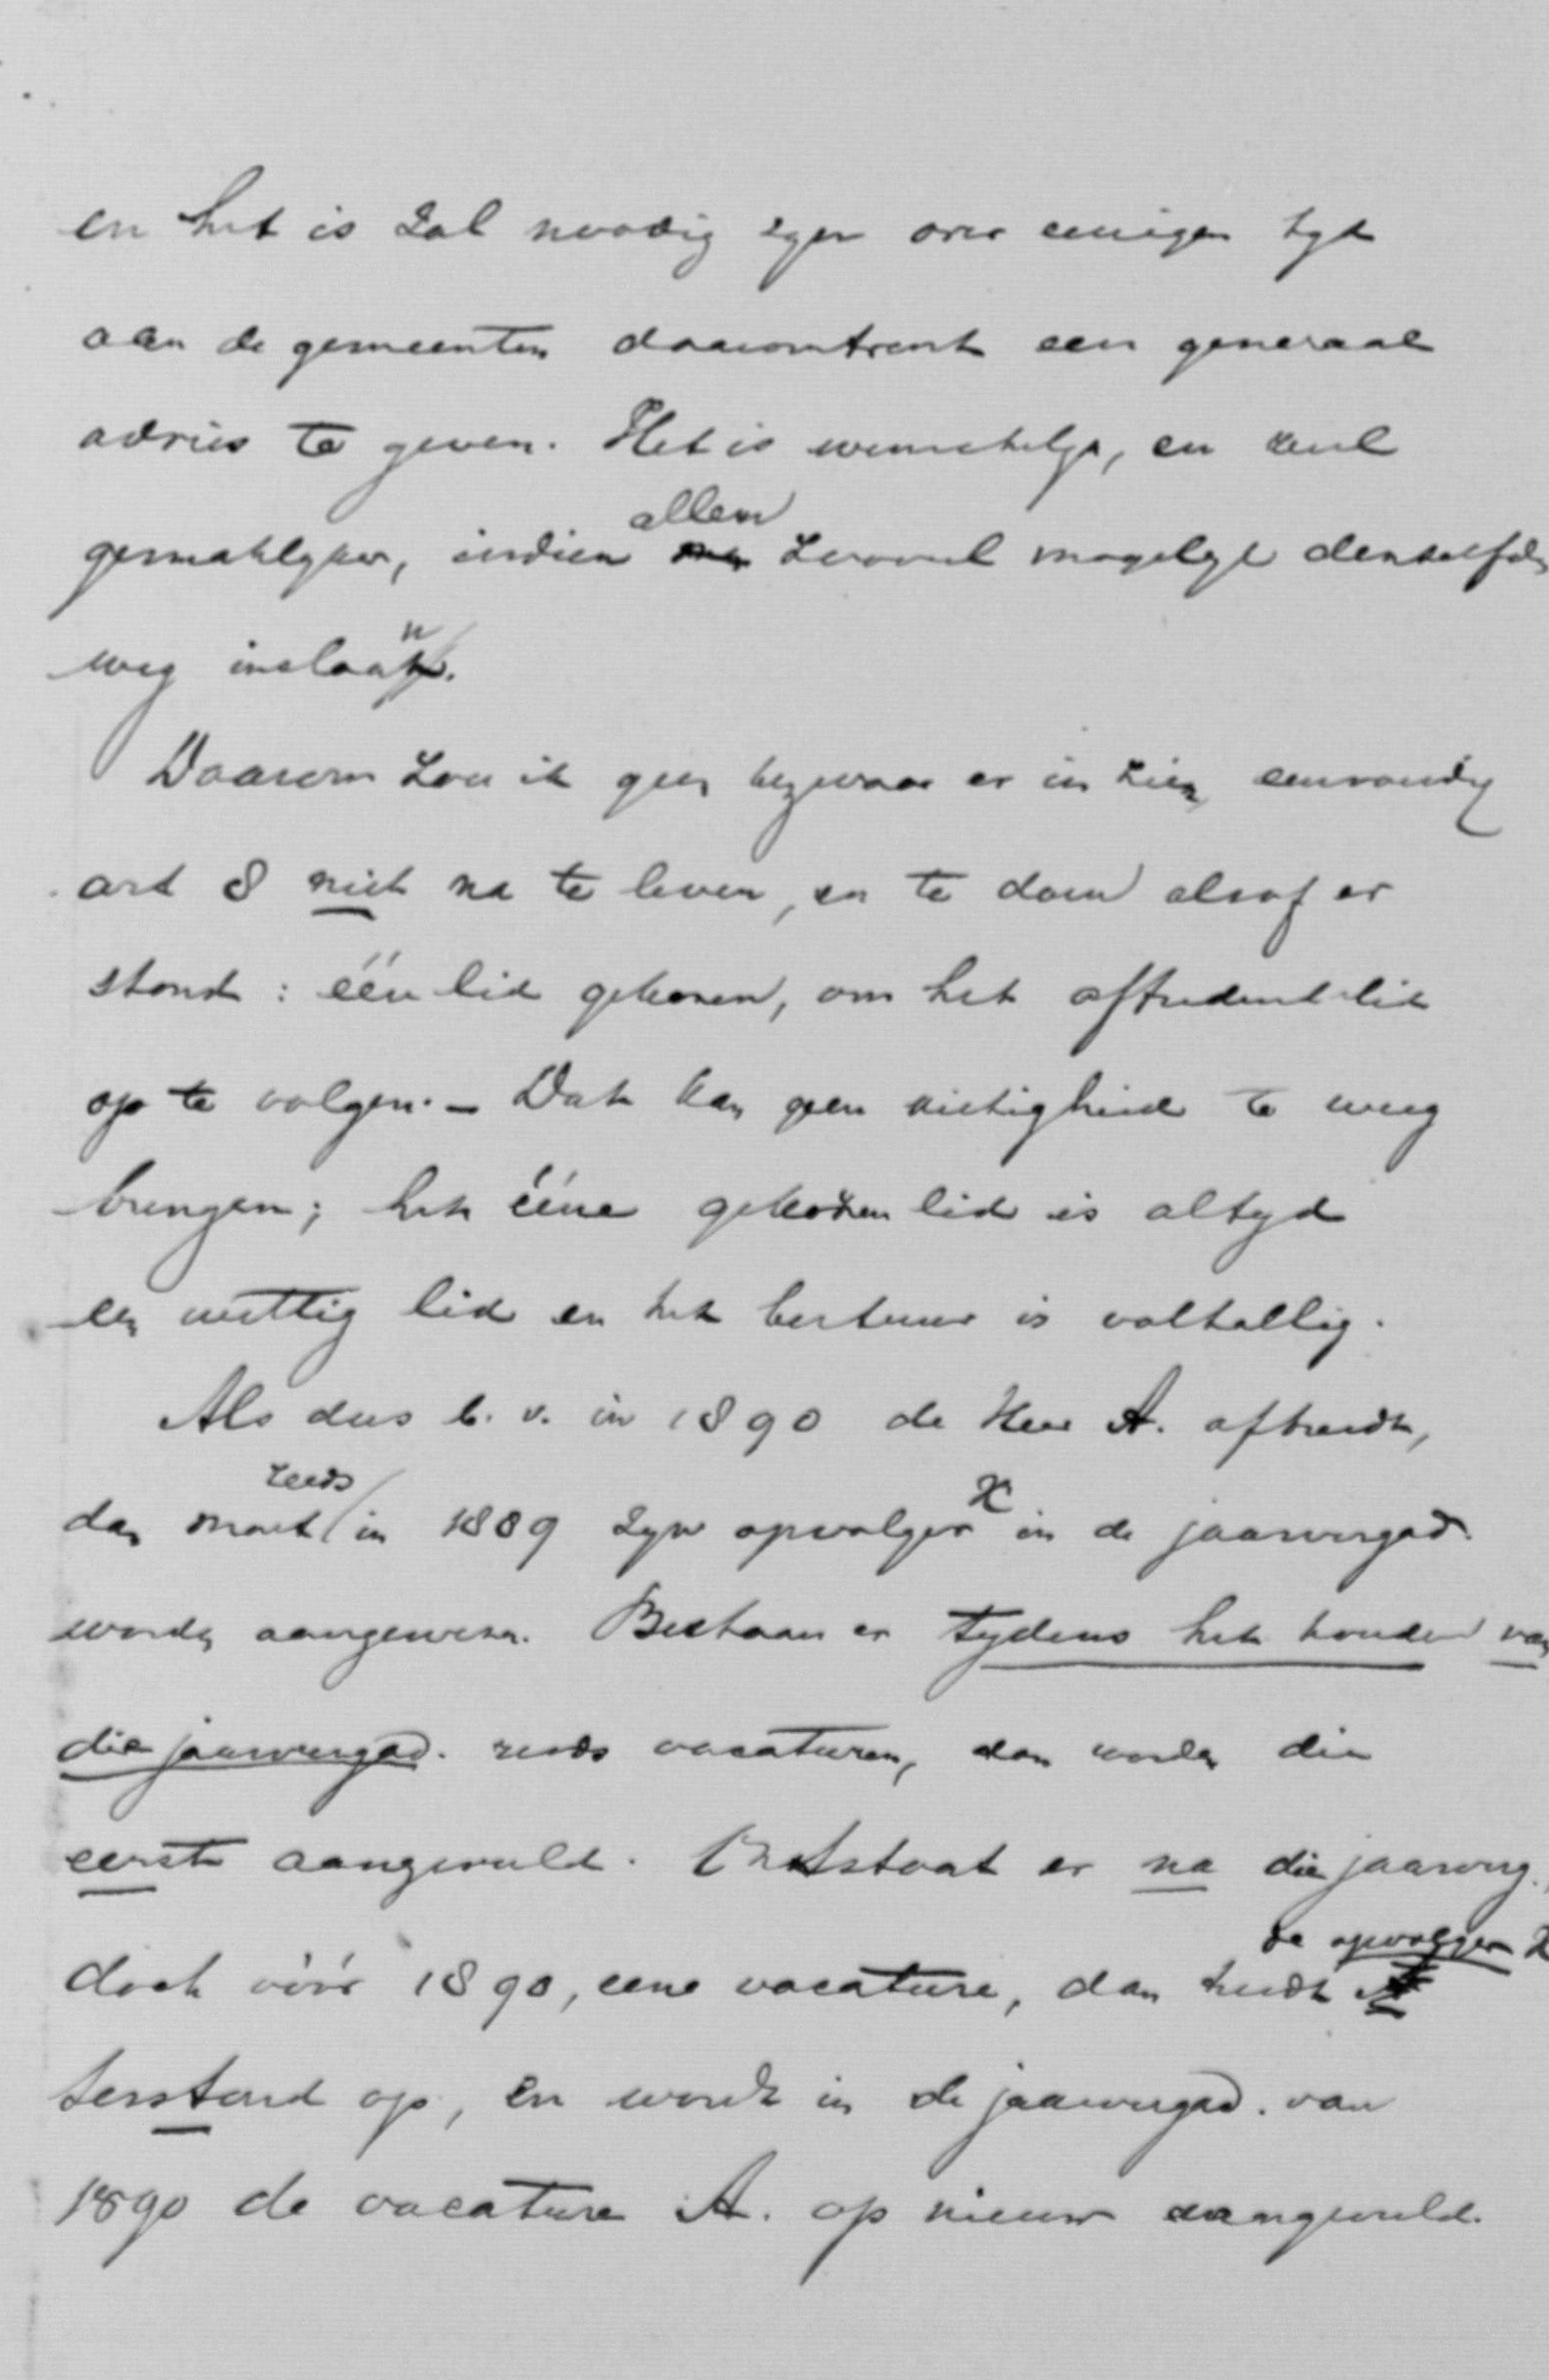 en het is zal noodig zyn over eenigen tyd
aan de gemeenten daaromtrent een generaal
advies te geven. Het is wenschelyk, en veel
gemakkelyker, indien allen zooveel mogelyk denzelfden
weg inslaan.
Daarom zou ik geen bezwaar er in zien, eenvoudig
art 8 niet na te leven, en te doen alsof er
stond: één lid gekozen, om het aftredend lid
op te volgen. – Dat kan geen nietigheid te weeg
brengen; het ééne gekozen lid is altyd
een wettig lid en het bestuur is voltallig.
Als dus b. v. in 1890 de Heer A. aftreedt,
dan moet reeds in 1889 zyn opvolger X in de jaarvergad.
worden aangewezen. Bestaan er tydens het houden van
die jaarvergad. reeds vacaturen, dan worden die
eerst aangevuld. Ontstaat er na die jaarverg.,
doch vóór 1890, eene vacature, dan treedt de opvolger
terstond op, en wordt in de jaarvergad. van
1890 de vacature A. op nieuw aangevuld.